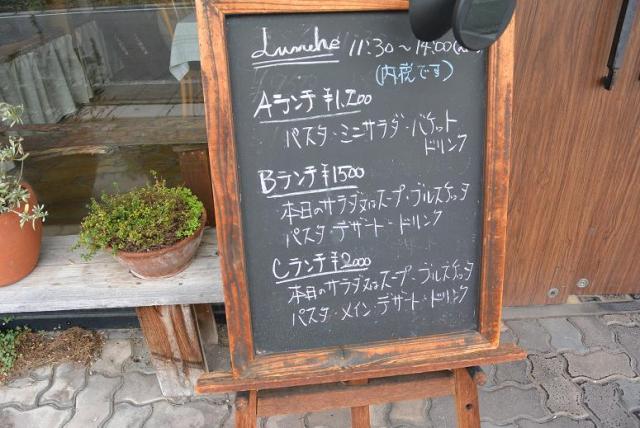 Lunch 11:30～14:00
(内税です)
Aランチ ¥1,200
パスタ・ミニサラダ・バケット
ドリンク
Bランチ ¥1500
本日のサラダ又はスープ・ブルスケッタ
パスタ・デザート・ドリンク
Cランチ ¥2000
本日のサラダ又はスープ・ブルスケッタ
パスタ・メイン・デザート・ドリンク